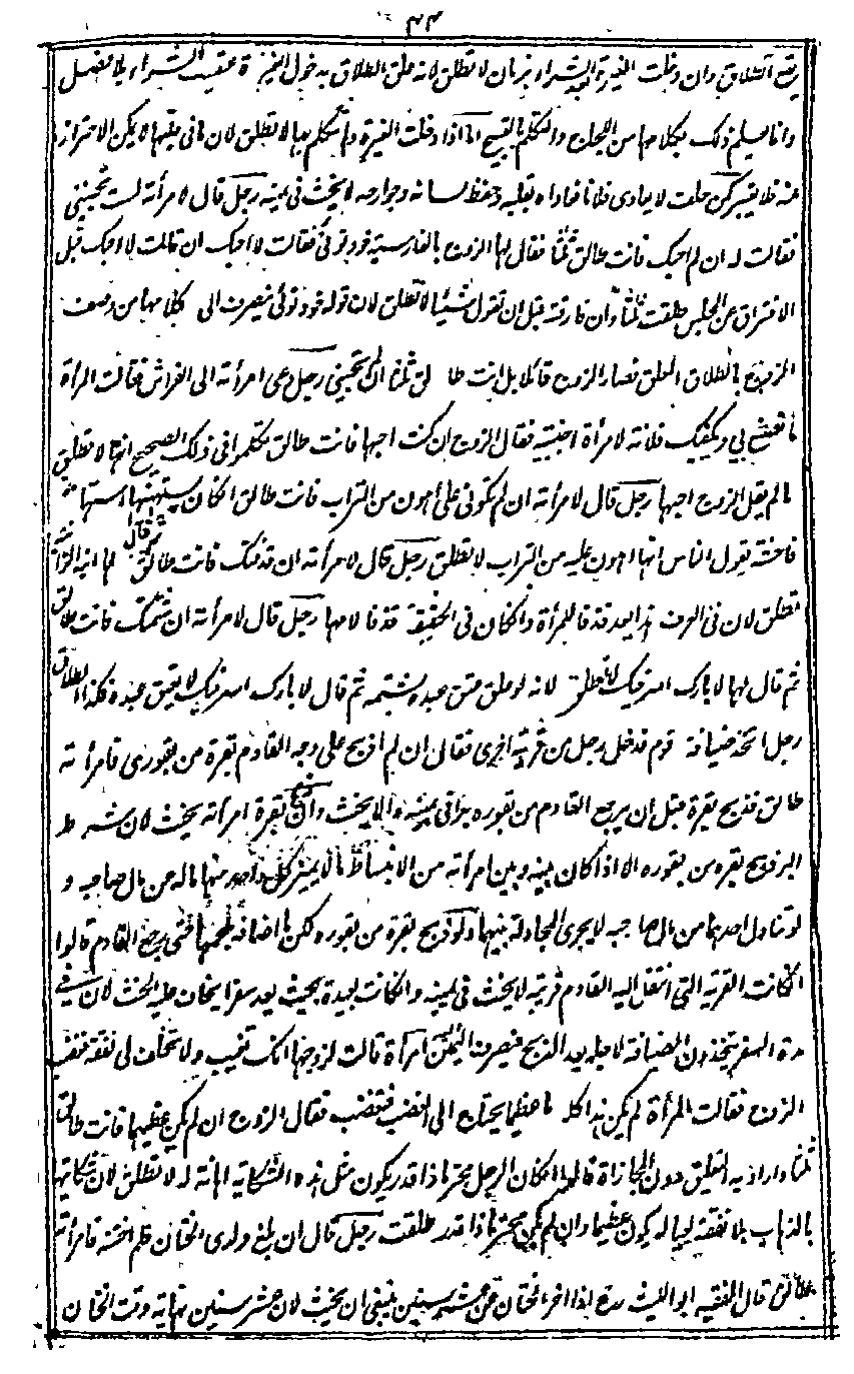 ۴۴
يقع الطلاق وان دخلت الغيرة بعد الشراء بزمان لا تطلق لانه علق الطلاق بدخول الغيرة عقيب الشراء بلا فصل
وانما يعلم ذلك بكلامها من اللجاج والتكلم القبيح اما اذا دخلت الغيرة ولم تتكلم بها لا تطلق لان ما في قلبها لا يمكن الاحتراز
عنه فلا يعتبر كمن حلف لا يعادى فلانا فعاداه بقلبه وحفظ لسانه وجوارحه لا يحنث في يمينه رجل قال لامرأته لست تحبيني
فقالت له ان لم احبك فانت طالق ثلثا فقال لها الزوج بالفارسية خود توئى فقالت لا احبك ان قالت لا احبك قبل
الافتراق عن المجلس طلقت ثلثا وان فارقته قبل ان تقول شيئا لا تطلق لان قوله خود توئى ينصرف الى كلامها من وصف
الزوج بالطلاق المعلق فصار الزوج قائلا بل انت طالق ثلثا ان لم تحبيني رجل دعى امرأته الى الفراش فقالت المرأة
ما تصنع بي ويكفيك فلانة لامرأة اجنبية فقال الزوج ان كنت احبها فانت طالق تكلموا في ذلك الصحيح انها لا تطلق
ما لم يقل الزوج احبها رجل قال لامرأته ان لم تكوني على اهون من التراب فانت طالق ان كان يستهينها استهانة
فاحشة يقول الناس انها اهون عليه من التراب لا تطلق رجل قال لامرأته ان قذفتك فانت طالق ثم قال لها ابنة الزانية
تطلق لان في العرف هذا يعد قذفا للمرأة وان كان في الحقيقة قذفا لامها رجل قال لامرأته ان شتمتك فانت طالق
ثم قال لها لا بارك الله فيك لا تطلق لانه لو علق عتق عبده بشتمه ثم قال لا بارك الله فيك لا يعتق عبده فكذا الطلاق
رجل اتخذ ضيافة قوم فدخل رجل من قرية اخرى فقال ان لم اذبح على وجه القادم بقرة من بقورى فامرأته
طالق فذبح بقرة قبل ان يرجع القادم من بقوره بر في يمينه والا يحنث وان ذبح بقرة امرأته يحنث لان شرط
البر ذبح بقره من بقوره الا اذا كان بينه وبين امرأته من الانبساط ما لا يميز كل واحد منهما ماله من مال صاحبه و
لو تناول احدهما من مال صاحبه لا يجرى المجادلة بينهما ولو ذبح بقرة من بقوره لكن ما اضافه بلحمها حتى رجع القادم قالوا
ان كانت القرية التي انتقل اليه القادم قريبة لا يحنث في يمينه وان كانت بعيدة بحيث يعد سفرا يخاف عليه الحنث لان في
مدة السفر يتخذون الضيافة لاجله بعد الذبح فينصرف اليمين امرأة قالت لزوجها انك تغيب ولا تخلف لي نفقة فغضب
الزوج فقالت المرأة لم يكن هذا كلاما عظيما يحتاج الى الغضب فغضب فقال الزوج ان لم يكن عظيما فانت طالق
ثلثا واراد به التعليق دون المجازاة قالوا ان كان الرجل محترما ذا قدر يكون مثل هذه الشكاية اهانة له لا تطلق لان شكايتها
بالذهاب بلا نفقة لعياله يكون عظيما وان لم يكن محترما ذا قدر طلقت رجل قال ان بلغ ولدى الختان فلم اختنه فامرأته
طالق قال الفقيه ابو الليث رح اذا اخر الختان عن عشر سنين ينبغي ان يحنث لان عشر سنين نهاية وقت الختان